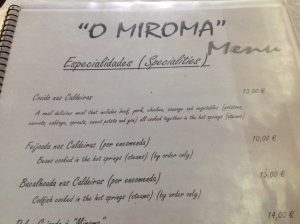 "O MIROMA"
Menu
Especialidades (Specialities)
Cozido nas Caldeiras 13,00 €
A real delicious meal that includes beef, pork, chicken, sausage and vegetables (potatoes,
carrots, cabbage, sprouts, sweet potato and yam) all cooked together in the hot springs (steams)
Feijoada nas Caldeiras (por encomenda) 10,00 €
Beans cooked in the hot springs (steams) (by order only)
Bacalhoada nas Caldeiras (por encomenda) 15,00 €
Codfish cooked in the hot springs (steams) (by order only)
"Miroma" 14,00 €